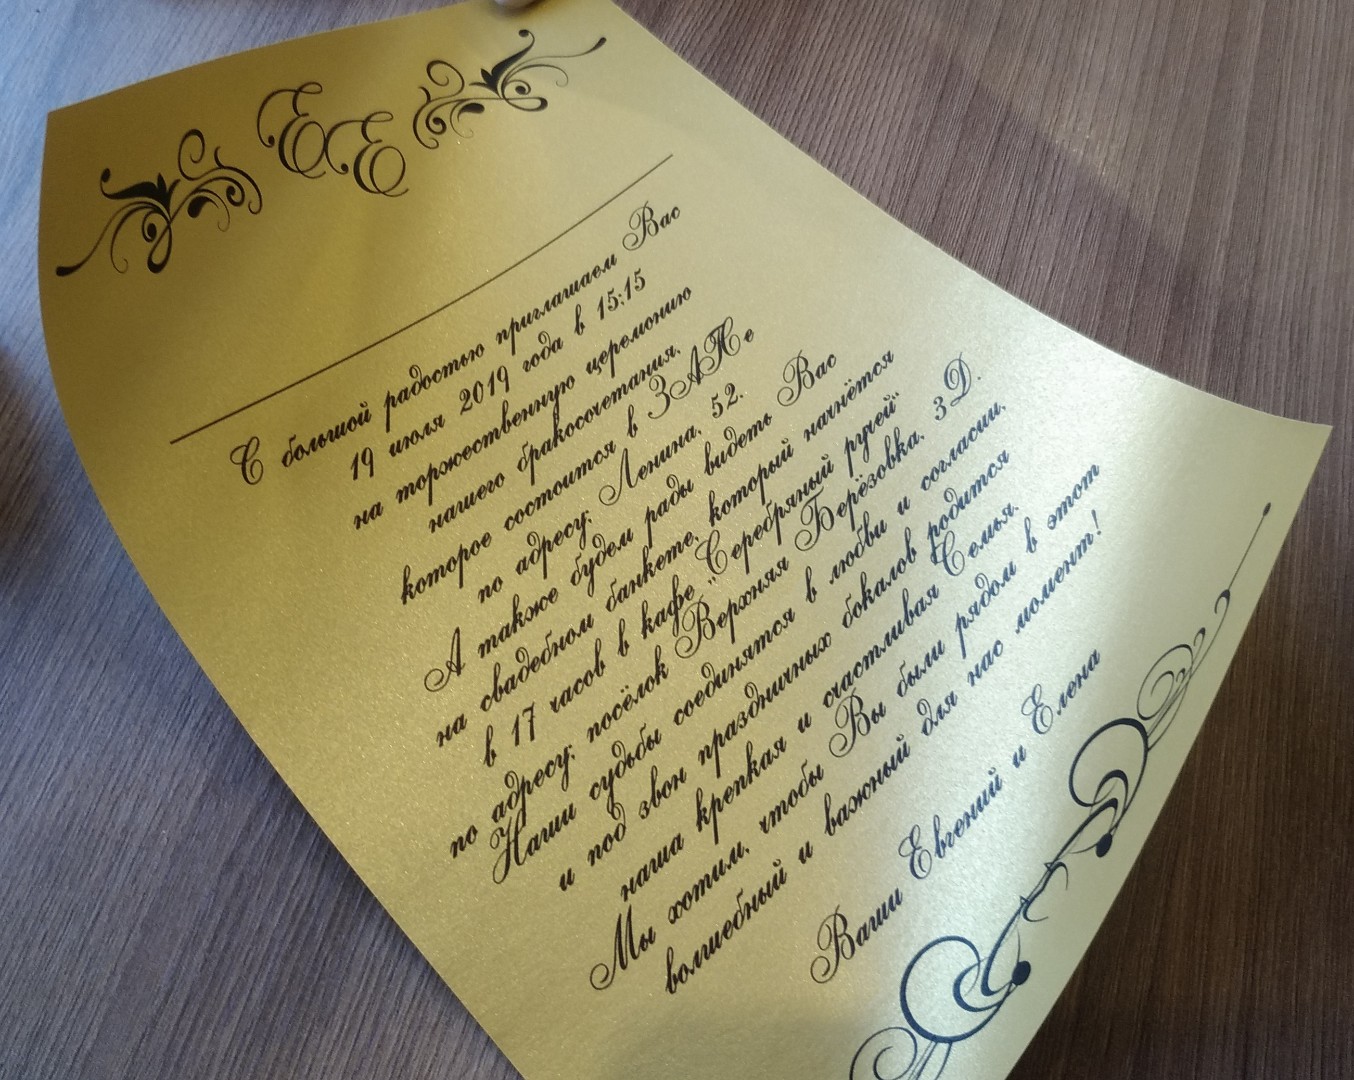 Е Е
С большой радостью приглашаем Вас
19 июля 2019 года в 15:15
на торжественную церемонию
нашего бракосочетания,
которое состоится в ЗАГСе
по адресу: Ленина, 52.
А также будем рады видеть Вас
на свадебном банкете, который начнётся
в 17 часов в кафе „Серебряный ручей"
по адресу: посёлок Верхняя Берёзовка, 3Д.
Наши судьбы соединятся в любви и согласии,
и под звон праздничных бокалов родится
наша крепкая и счастливая Семья.
Мы хотим, чтобы Вы были рядом в этот
волшебный и важный для нас момент!
Ваши Евгений и Елена